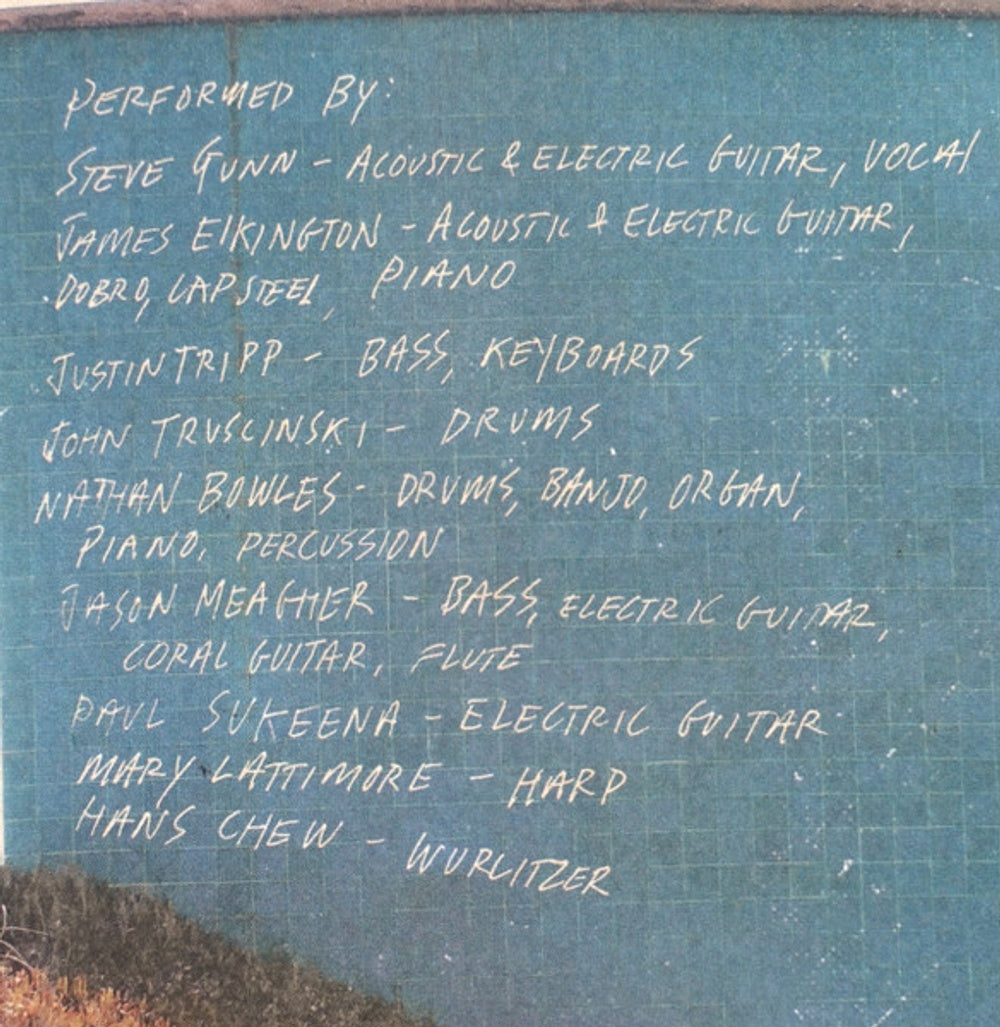 PERFORMED BY:
STEVE GUNN - ACOUSTIC & ELECTRIC GUITAR, VOCAL
JAMES ELKINGTON - ACOUSTIC & ELECTRIC GUITAR,
DOBRO, LAP STEEL, PIANO
JUSTIN TRIPP - BASS, KEYBOARDS
JOHN TRUSCINSKI - DRUMS
NATHAN BOWLES - DRUMS, BANJO, ORGAN,
PIANO, PERCUSSION
JASON MEAGHER - BASS, ELECTRIC GUITAR,
CORAL GUITAR, FLUTE
PAUL SUKEENA - ELECTRIC GUITAR
MARY LATTIMORE - HARP
HANS CHEW - WURLITZER